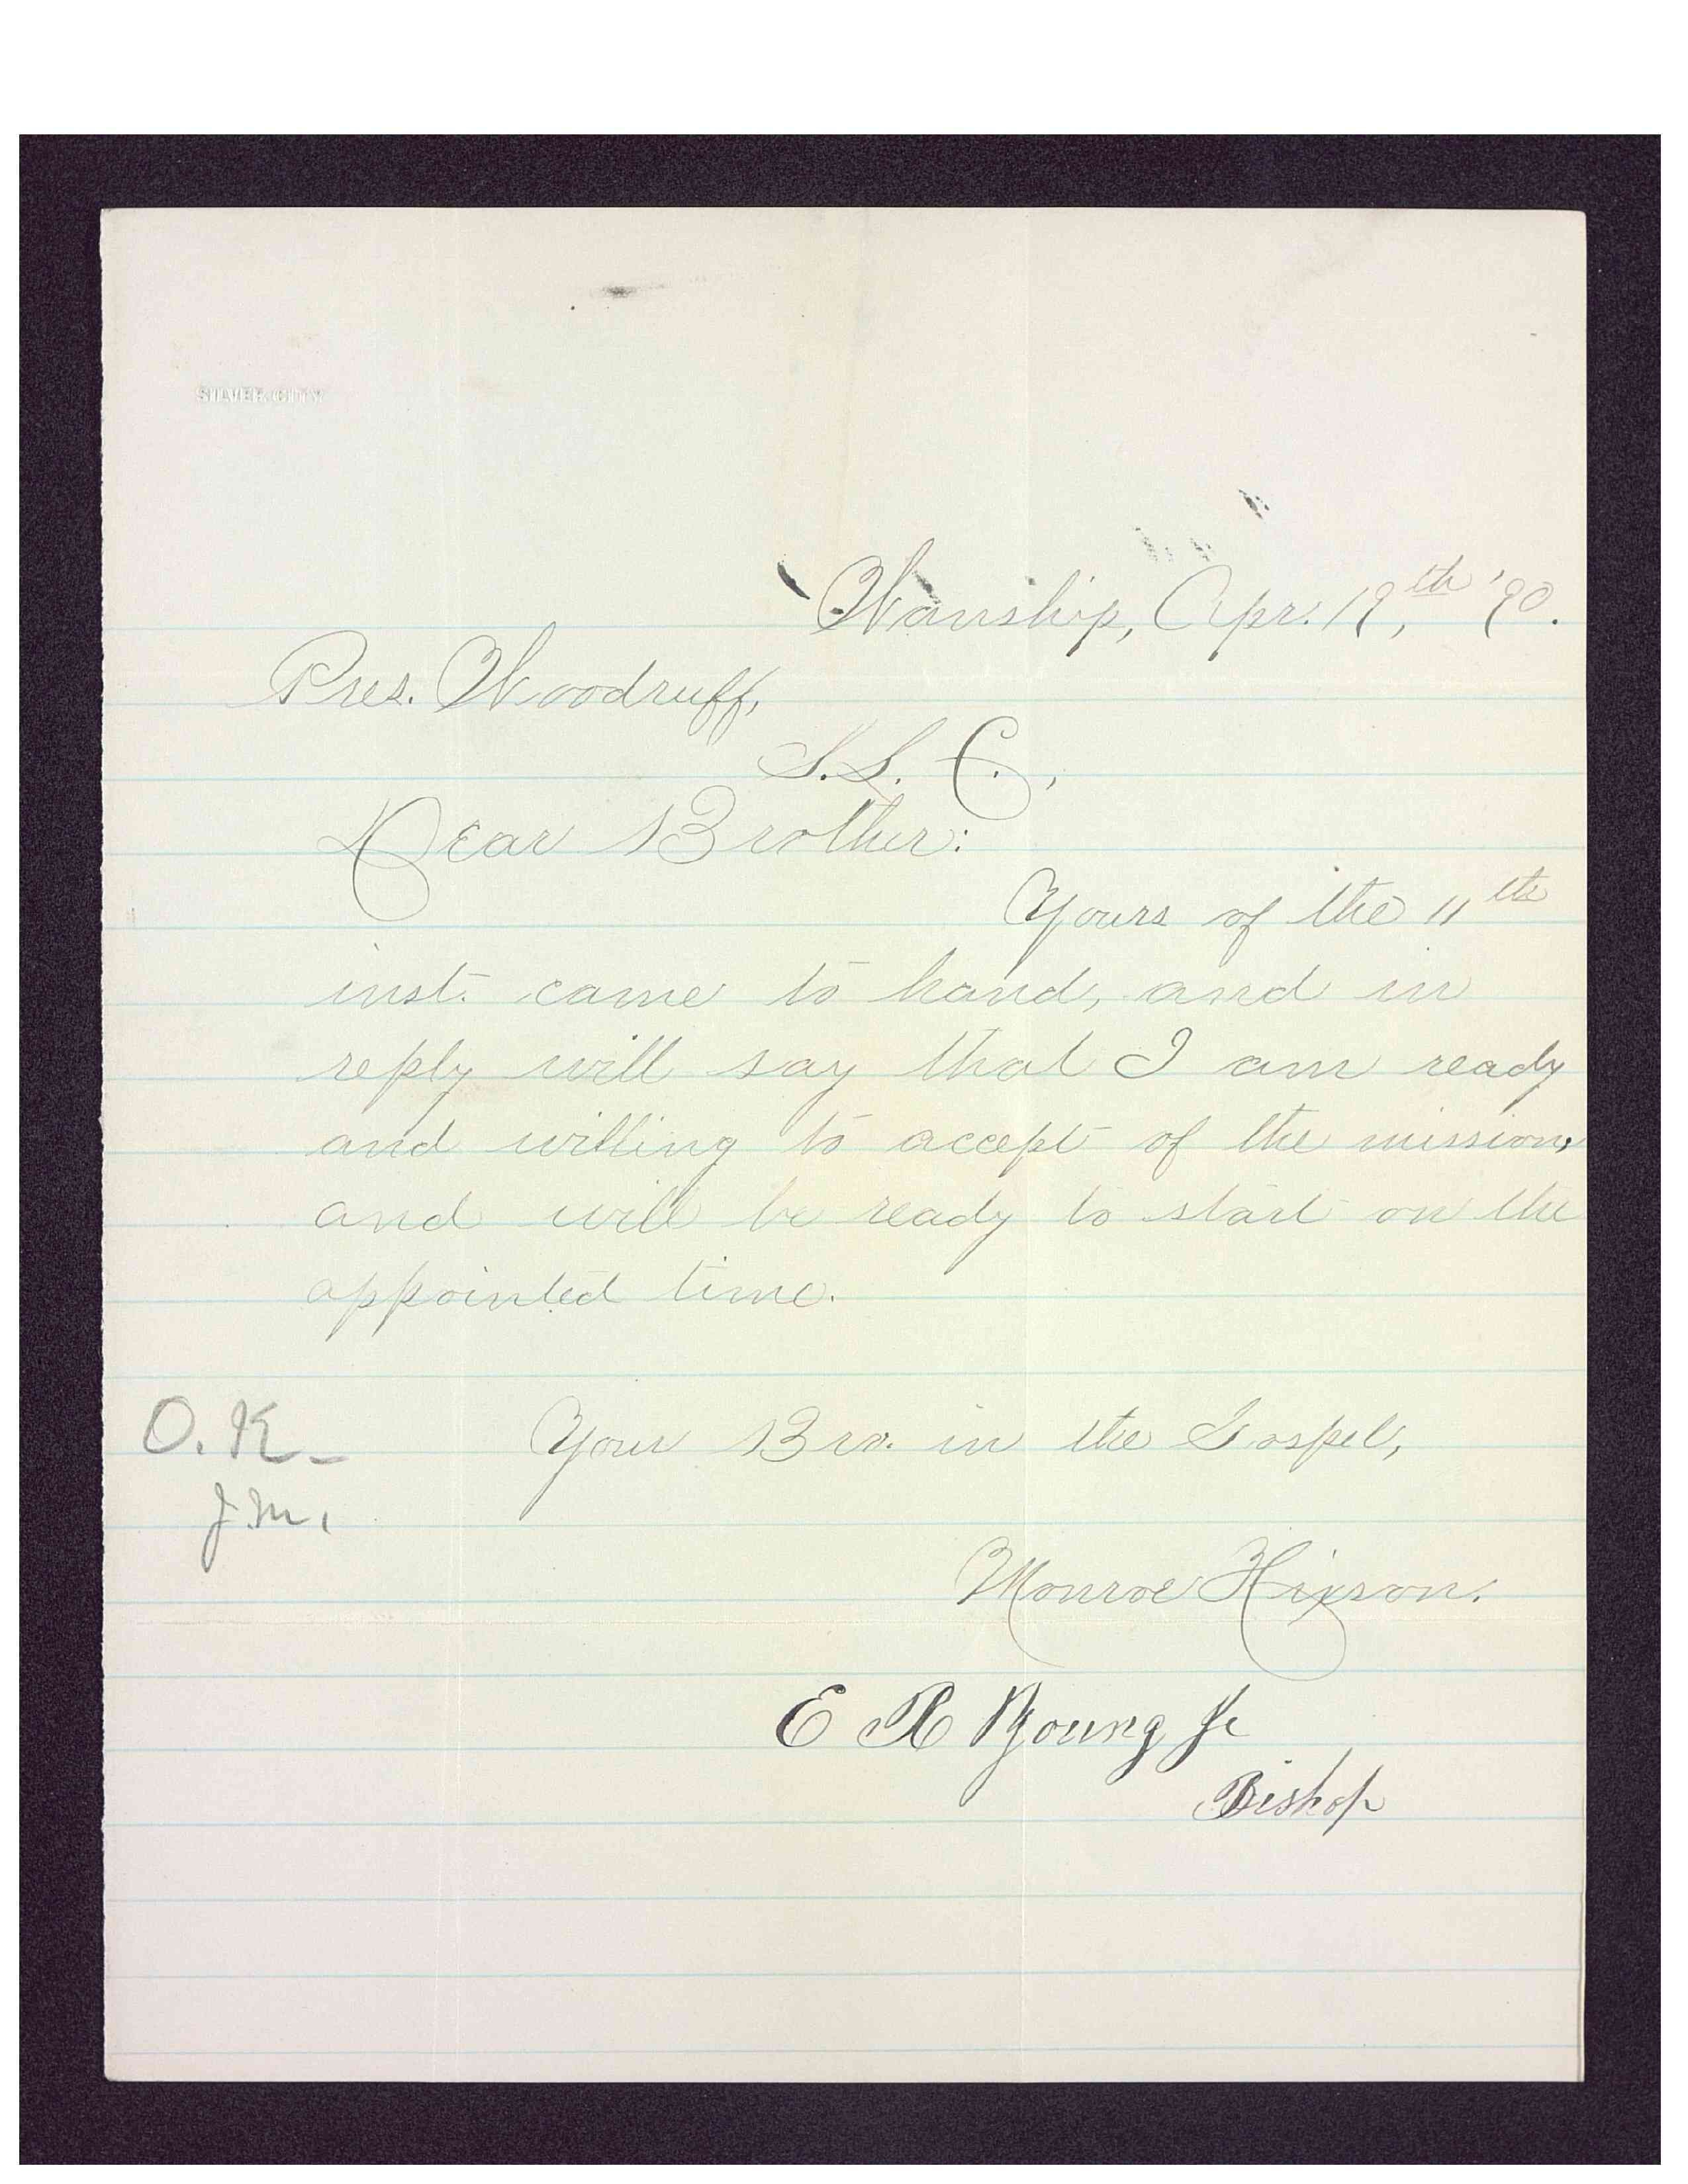 SILVER CITY
Wanship, Apr. 19th, '90.
Pres. Woodruff,
S. L. C.,
Dear Brother:
Yours of the 11th
inst. came to hand, and in
reply will say that I am ready
and willing to accept of the mission,
and will be ready to start on the
appointed time.
Your Bro. in the Gospel,
O. K.
J. M.
Monroe Hixson.
E R Young Jr
Bishop